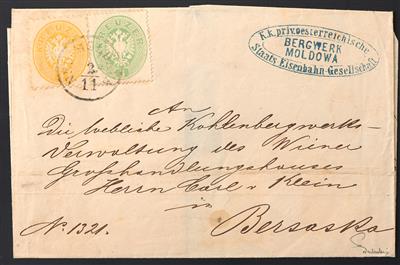 KREUZER
2/11
K.k. priv. oesterreichische
BERGWERK
MOLDOWA
Staats Eisenbahn-Gesellschaft
An
Die loebliche Kohlenbergwerks-
Verwaltung des Wiener
Grosshandlungshauses
Herrn Carl v Klein
in
No. 1321.
Bersaska